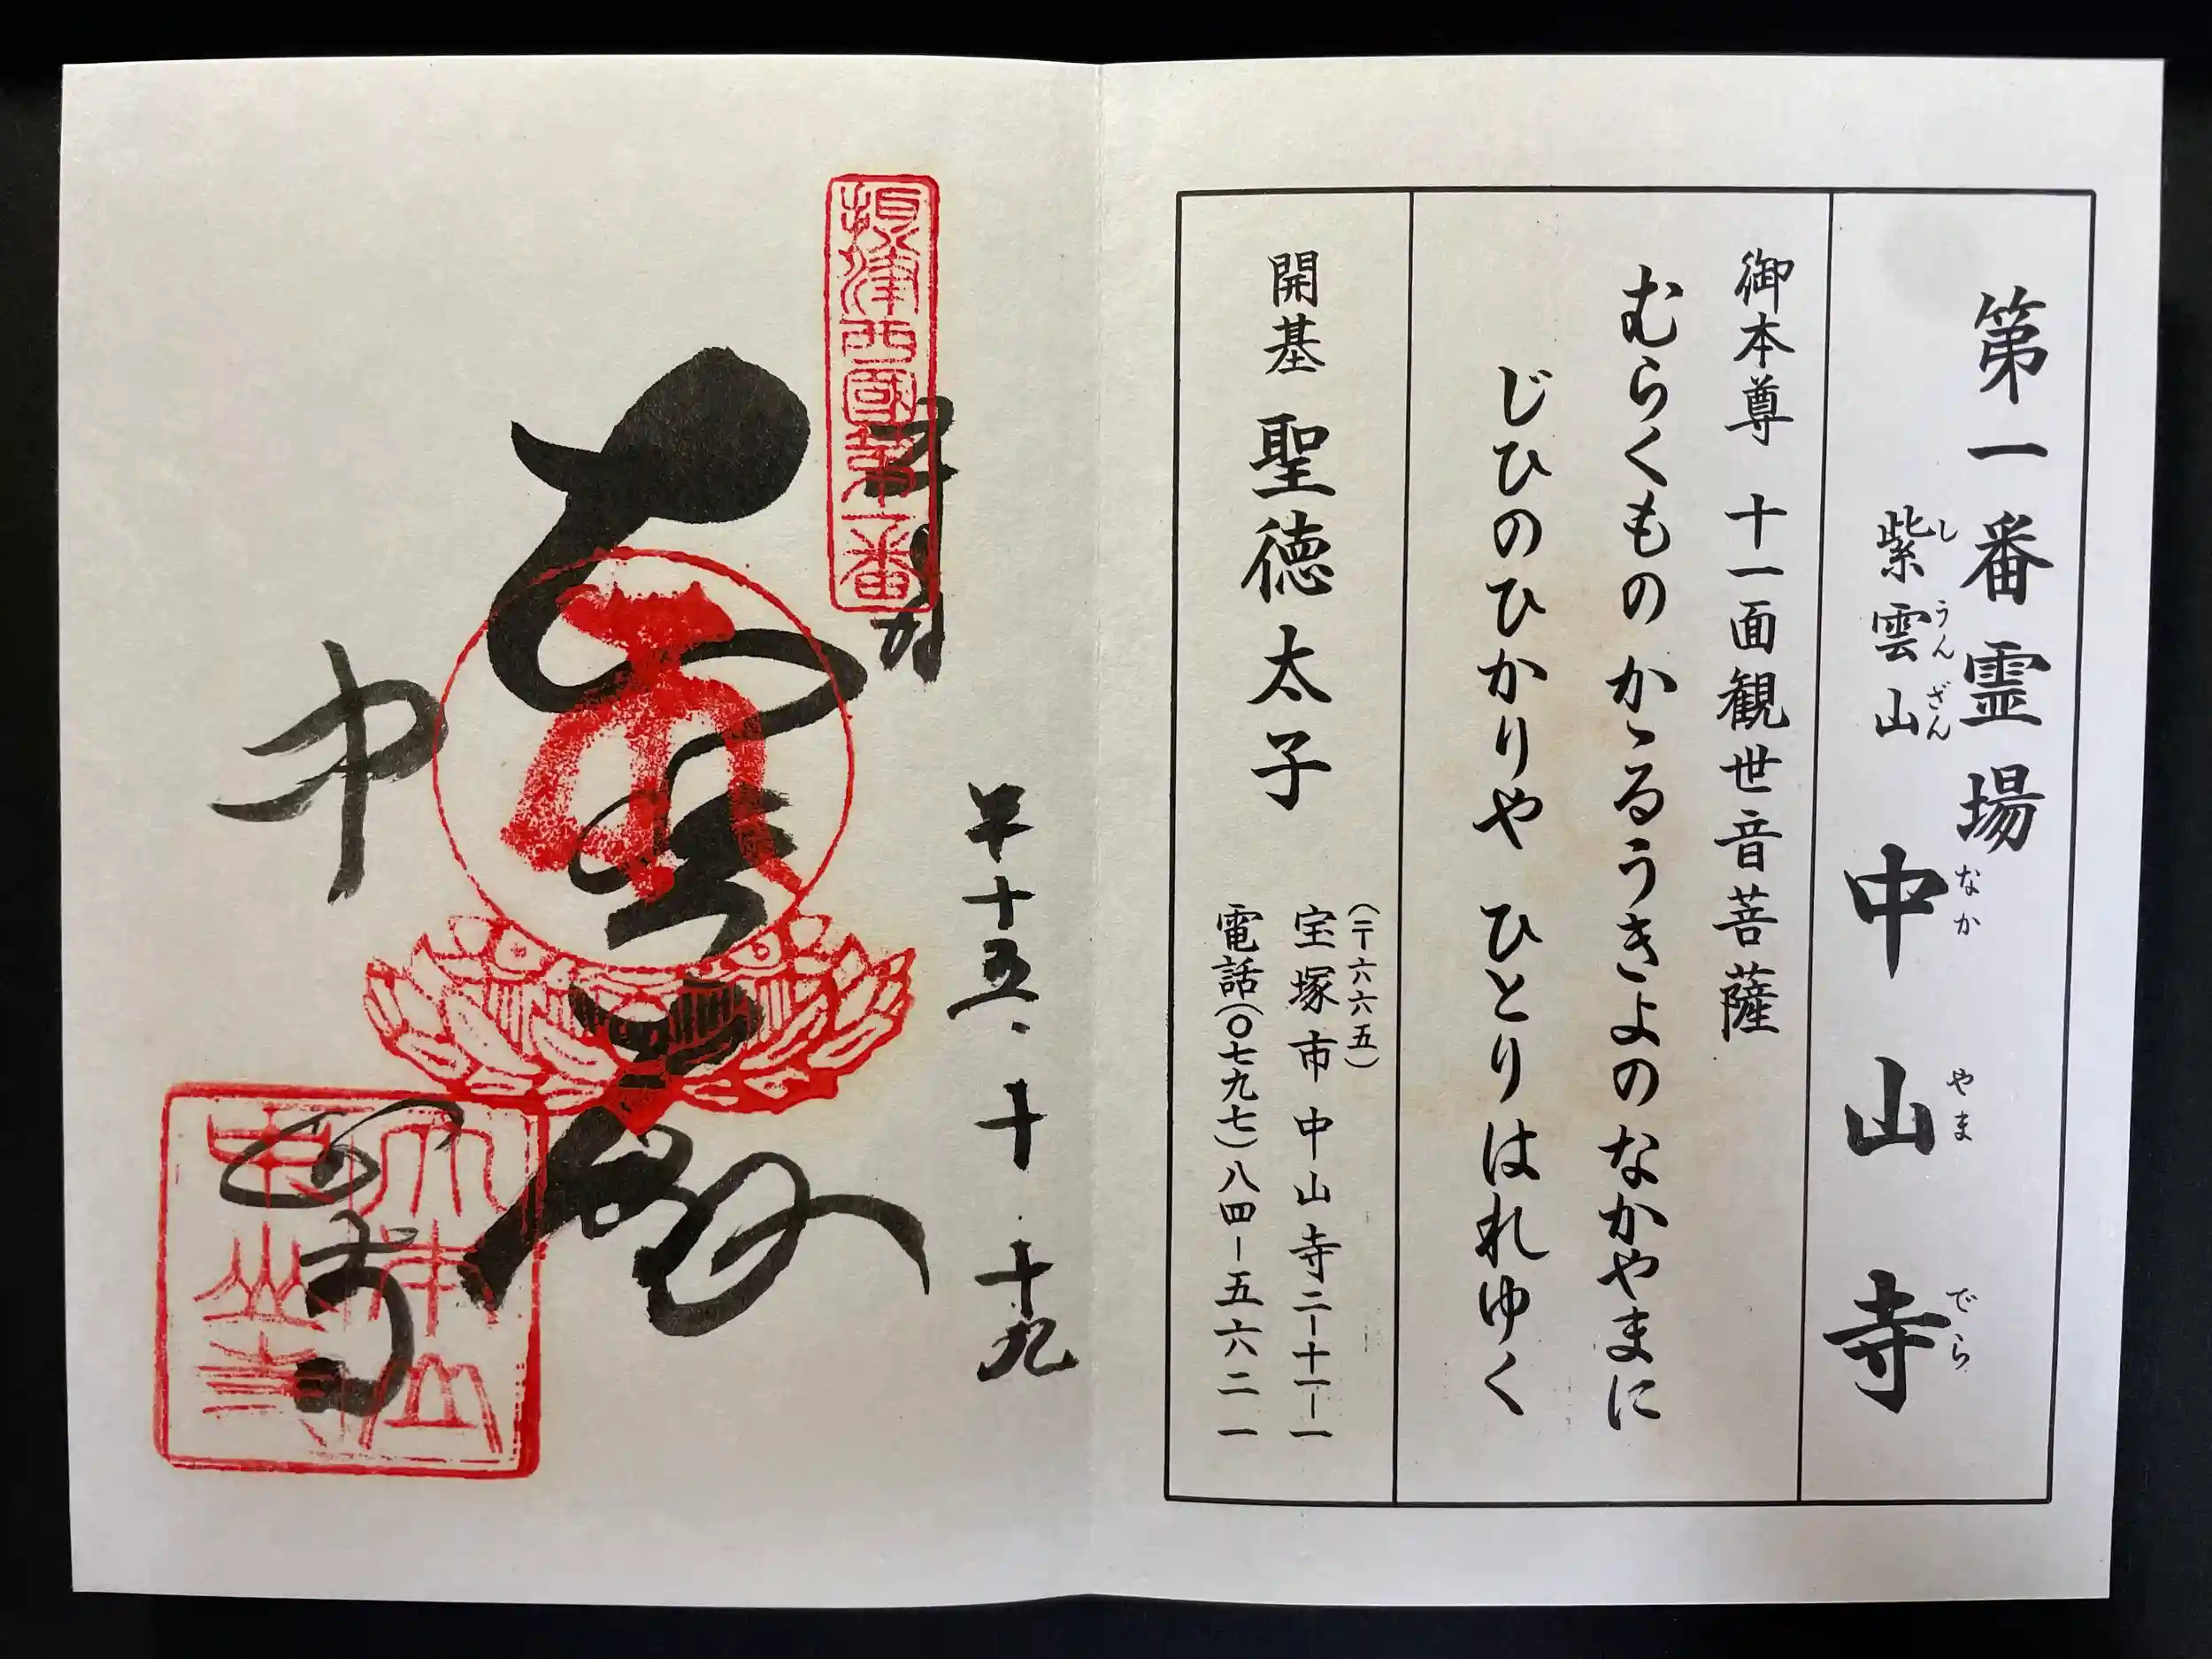 第一番霊場
紫雲山 中山寺
し うん ざん なか やま でら
御本尊 十一面観世音菩薩
むらくもの かゝるうきよの なかやまに
じひのひかりや ひとりはれゆく
開基 聖徳太子
(〒六六五)
宝塚市中山寺二ー十一ー一
電話(〇七九七)八四ー五六二一
平十五.十.十九
奉拝
摂津西國第一番
中山寺
大本山
中山寺